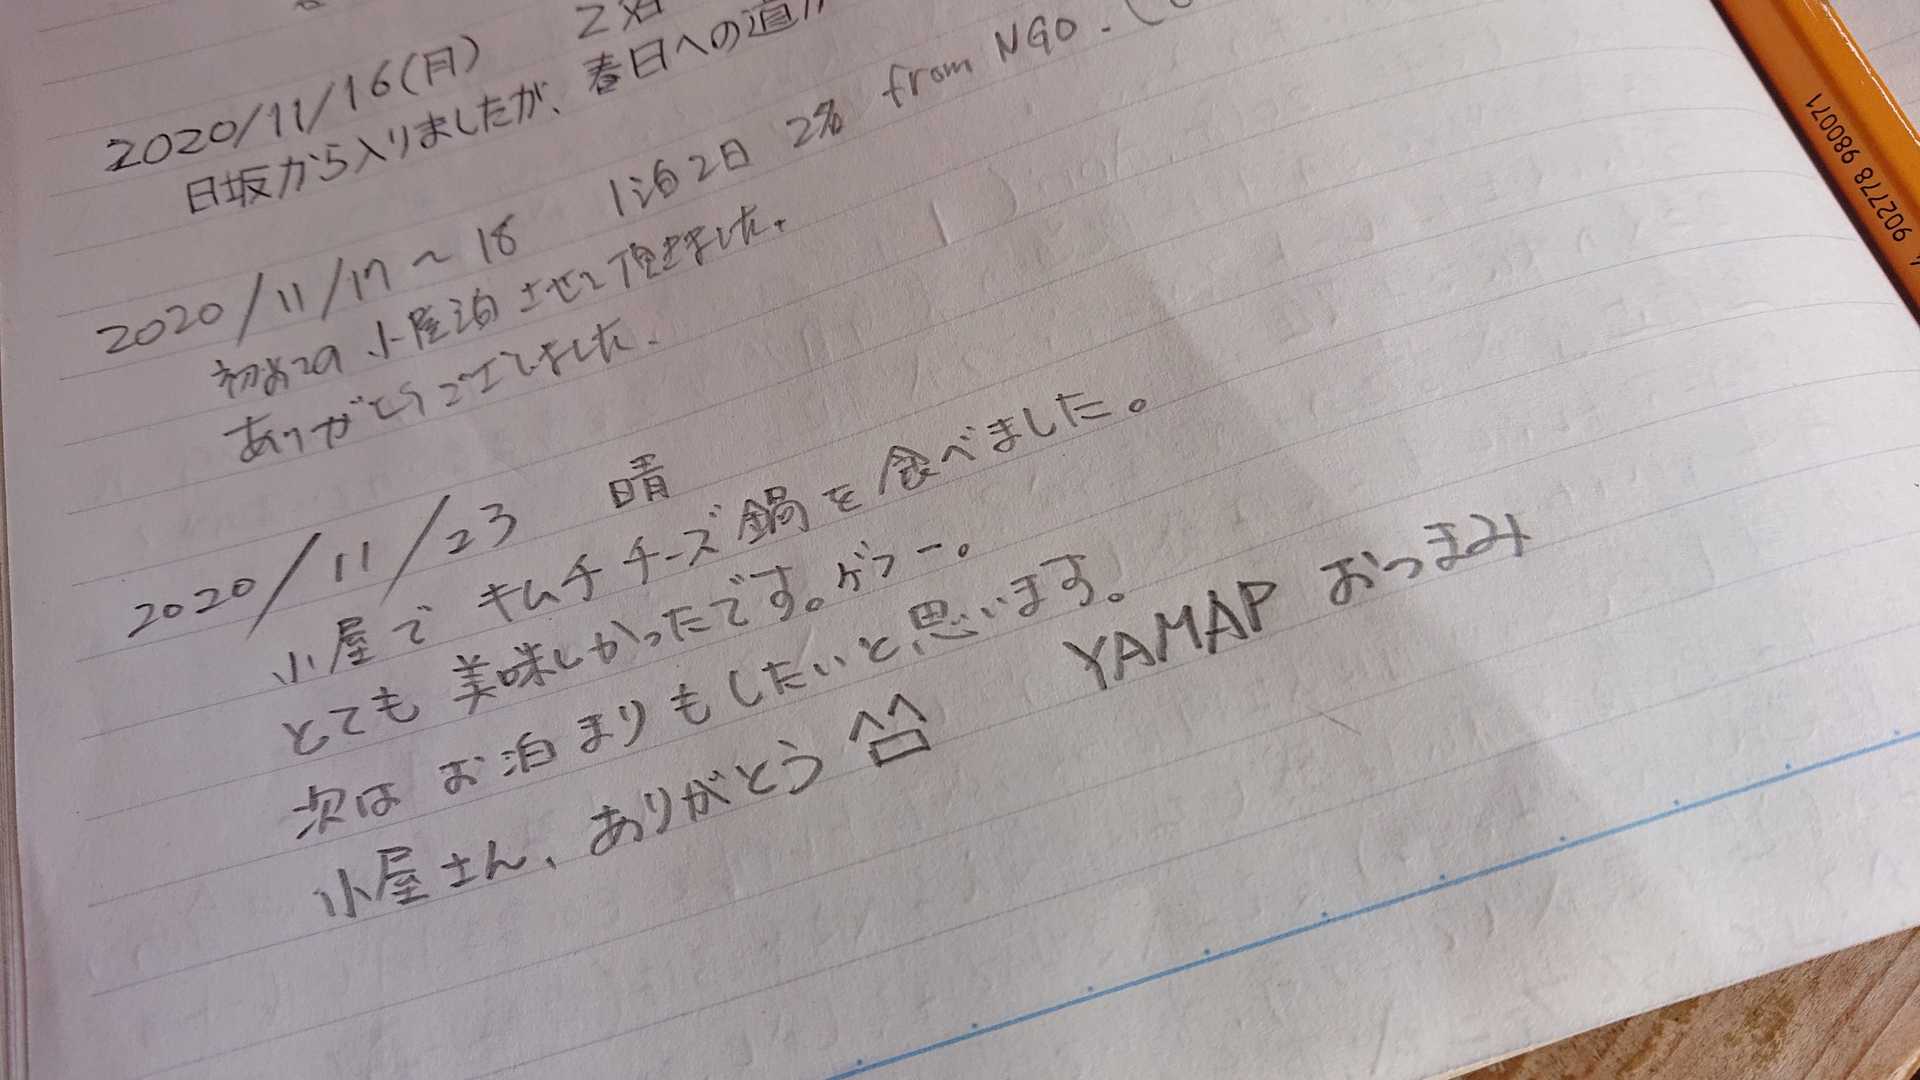 2020/11/16(月) 2泊
日坂から入りましたが、春日への道が
2020/11/17~18 1泊2日 2名 from NGO.
初めての小屋泊させて頂きました.
ありがとうございました.
2020/11/23 晴
小屋でキムチチーズ鍋を食べました。
とても美味しかったです。ゲフー。
次はお泊まりもしたいと思います。
小屋さん、ありがとう ^^ YAMAP おつまみ
902778 980071